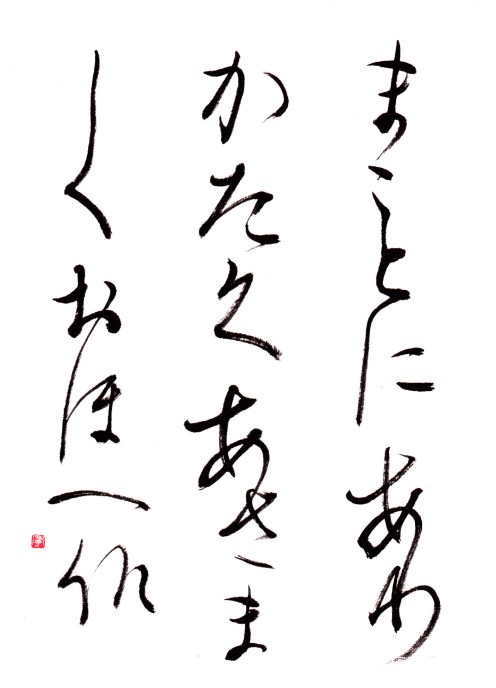 まことにあり
かたくあさま
しくおほへ